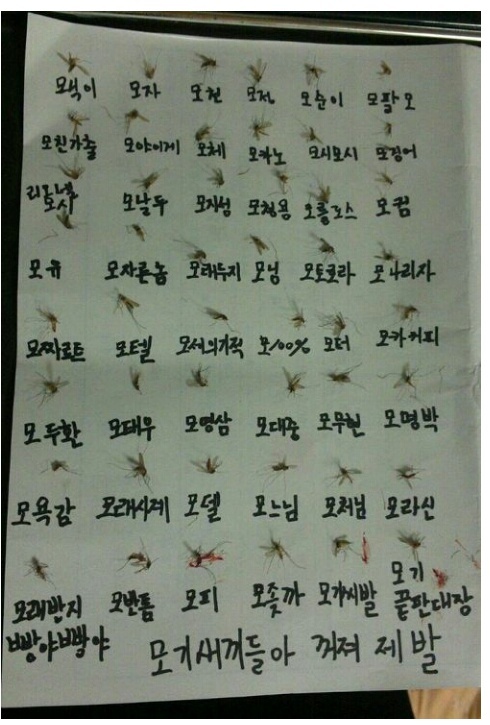 모싹이 모자 모천 모전 모순이 모팔모
모친가출 모야이게 모체 모카노 모시모시 모징어
리오넬모시 모날두 모지성 모청용 모릉포스 모컴
모유 모자른놈 모태두지 모닝 모토로라 모나리자
모짜로트 모텔 모세의기적 모100% 모더 모카커피
모두환 모태우 모영삼 모대중 모무현 모명박
모욕감 모래시계 모델 모느님 모처님 모라신
모래반지 모반톱 모피 모좆까 모가씨발 모기끝판대장
빠빵야빠빵야
모기새끼들아 꺼져 제발